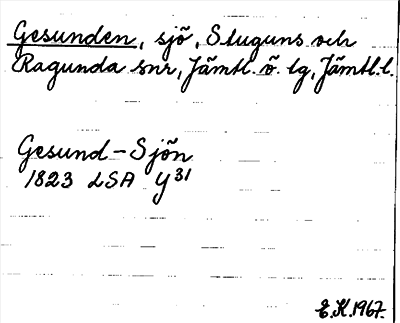 Gesunden, sjö, Stuguns och
Ragunda snr, Jämtl. ö. tg, Jämtl. l.
Gesund-Sjön
1823 LSA Y31
E.H. 1967.